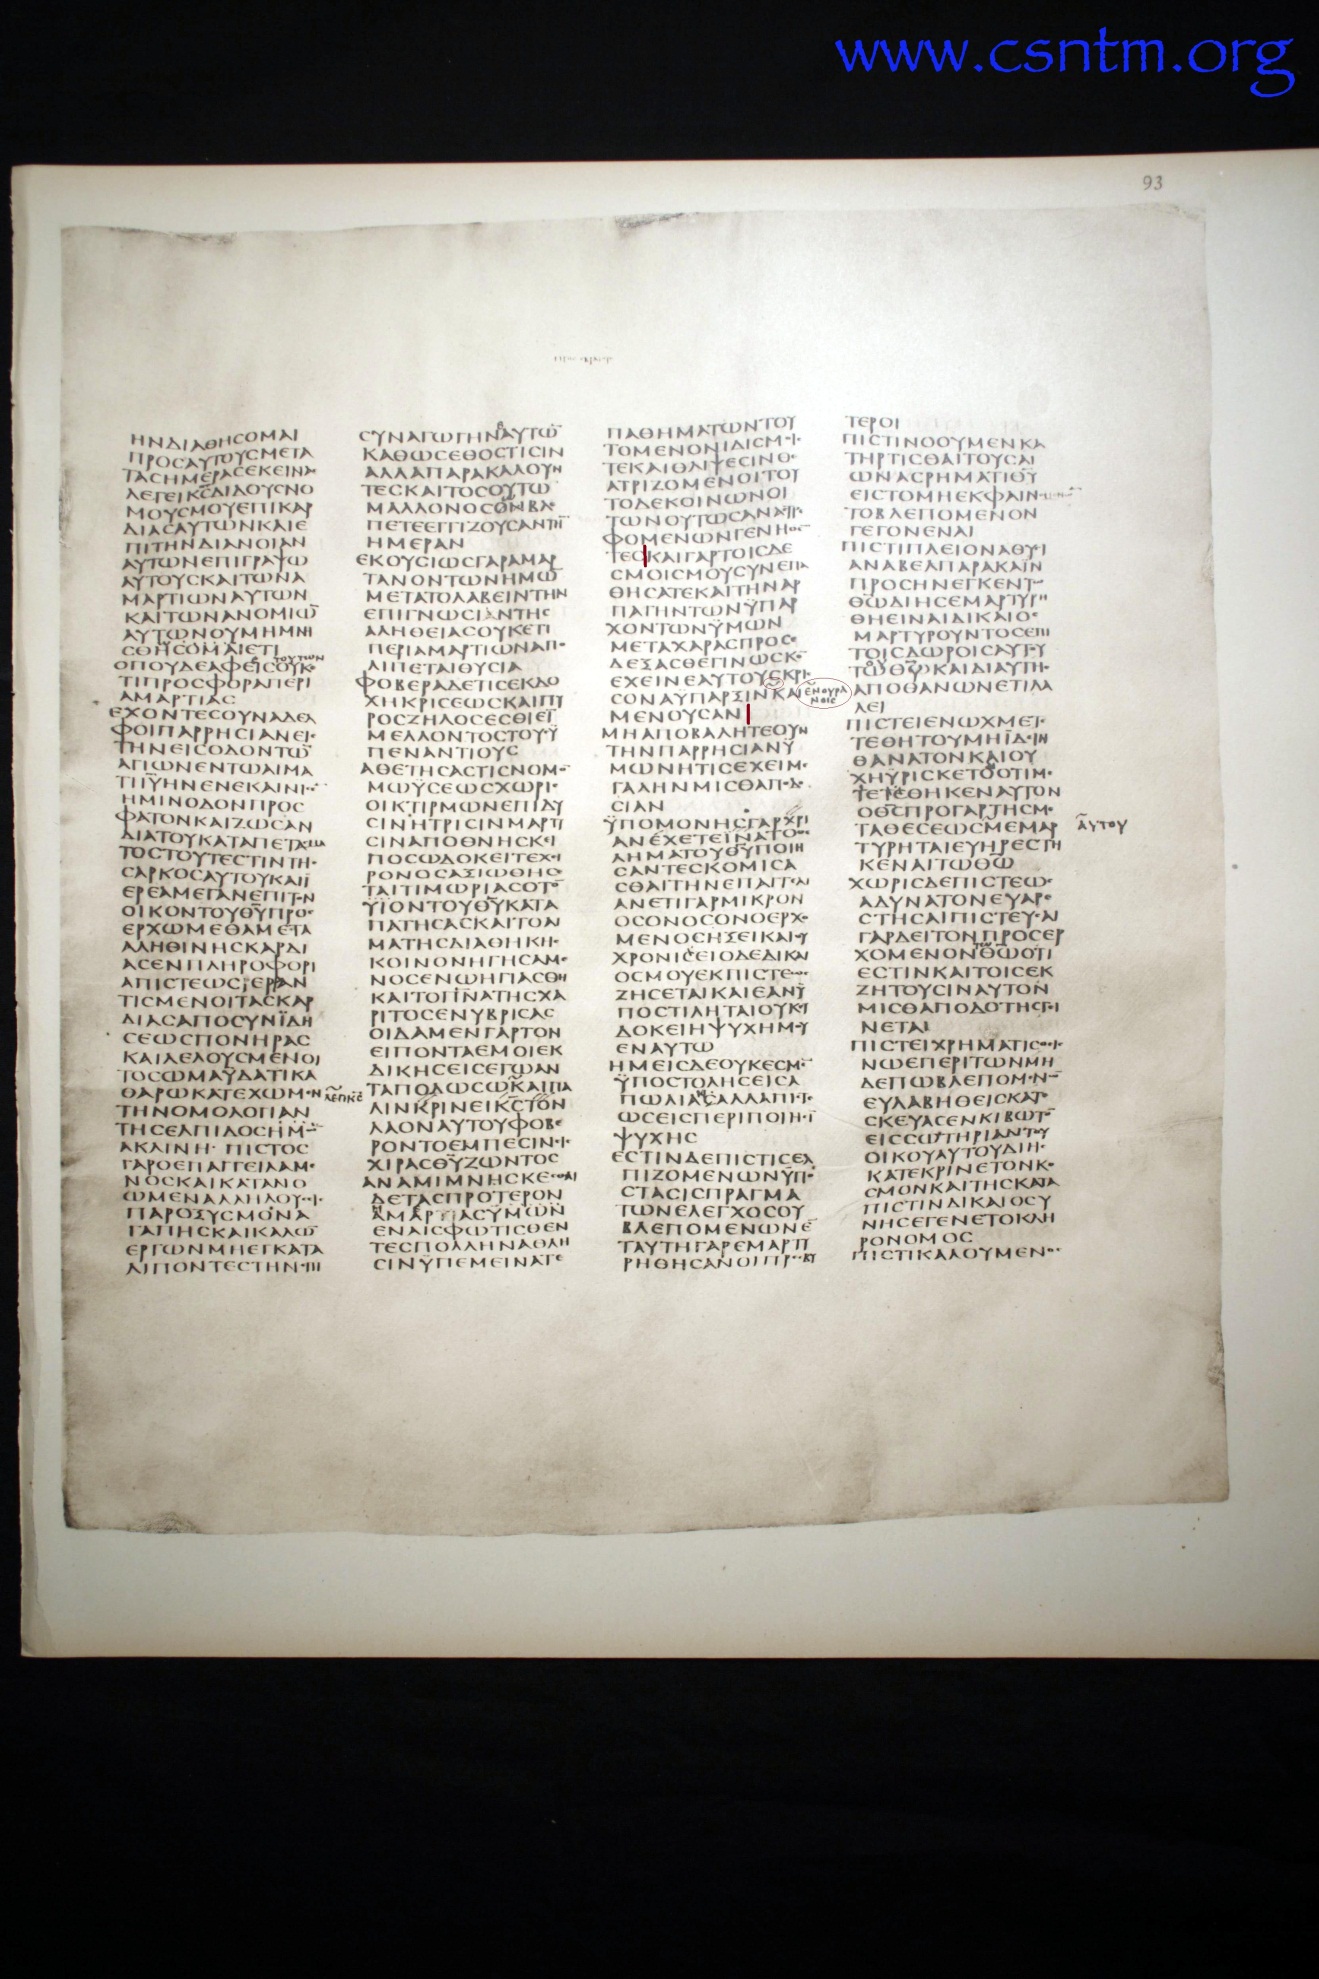 www.csntm.org
93
ΗΝΔΙΑΘΗCΟΜΑΙ
ΠΡΟCΑΥΤΟΥCΜΕΤΑ
ΤΑCΗΜΕΡΑCΕΚΕΙΝΑC
ΛΕΓΕΙΚ̅C̅ΔΙΔΟΥCΝΟ
ΜΟΥCΜΟΥΕΠΙΚΑΡ
ΔΙΑCΑΥΤΩΝΚΑΙΕ
ΠΙΤΗΝΔΙΑΝΟΙΑΝ
ΑΥΤΩΝΕΠΙΓΡΑΨΩ
ΑΥΤΟΥCΚΑΙΤΩΝΑ
ΜΑΡΤΙΩΝΑΥΤΩΝ
ΚΑΙΤΩΝΑΝΟΜΙΩ̅
ΑΥΤΩΝΟΥΜΗΜΝΗ
CΘΗCΟΜΑΙΕΤΙ
ΟΠΟΥΔΕΑΦΕΙCΟΥΚ
ΤΟΥΤΩΝ
ΤΙΠΡΟCΦΟΡΑΠΕΡΙ
ΑΜΑΡΤΙΑC
ΕΧΟΝΤΕCΟΥΝΑΔΕΛ
ΦΟΙΠΑΡΡΗCΙΑΝΕΙC
ΤΗΝΕΙCΟΔΟΝΤΩ̅
ΑΓΙΩΝΕΝΤΩΑΙΜΑ
ΤΙΙ̅Υ̅ΗΝΕΝΕΚΑΙΝΙ
ΗΜΙΝΟΔΟΝΠΡΟC
ΦΑΤΟΝΚΑΙΖΩCΑΝ
ΔΙΑΤΟΥΚΑΤΑΠΕΤΑCΜΑ
ΤΟCΤΟΥΤΕCΤΙΝΤΗC
CΑΡΚΟCΑΥΤΟΥΚΑΙΪ
ΕΡΕΑΜΕΓΑΝΕΠΙΤΟΝ
ΟΙΚΟΝΤΟΥΘ̅Υ̅ΠΡΟC
ΕΡΧΩΜΕΘΑΜΕΤΑ
ΑΛΗΘΙΝΗCΚΑΡΔΙ
ΑCΕΝΠΛΗΡΟΦΟΡΙ
ΑΠΙCΤΕΩCΡΕΡΑΝ
ΤΙCΜΕΝΟΙΤΑCΚΑΡ
ΔΙΑCΑΠΟCΥΝΪΔΗ
CΕΩCΠΟΝΗΡΑC
ΚΑΙΛΕΛΟΥCΜΕΝΟΙ
ΤΟCΩΜΑΥΔΑΤΙΚΑ
ΘΑΡΩΚΑΤΕΧΩΜΕΝ
ΤΗΝΟΜΟΛΟΓΙΑΝ
ΤΗCΕΛΠΙΔΟCΗΜΩ̅
ΑΚΛΙΝΗ ΠΙCΤΟC
ΓΑΡΟΕΠΑΓΓΕΙΛΑΜΕ
ΝΟCΚΑΙΚΑΤΑΝΟ
ΩΜΕΝΑΛΛΗΛΟΥCΕΙC
ΠΑΡΟΞΥCΜΟΝΑ
ΓΑΠΗCΚΑΙΚΑΛΩ̅
ΕΡΓΩΝΜΗΕΓΚΑΤΑ
ΛΙΠΟΝΤΕCΤΗΝΕΠΙ
CΥΝΑΓΩΓΗΝΑΥΤΩ̅
ΚΑΘΩCΕΘΟCΤΙCΙΝ
ΑΛΛΑΠΑΡΑΚΑΛΟΥΝ
ΤΕCΚΑΙΤΟCΟΥΤΩ
ΜΑΛΛΟΝΟCΟΝΒΛΕ
ΠΕΤΕΕΓΓΙΖΟΥCΑΝΤΗ̅
ΗΜΕΡΑΝ
ΕΚΟΥCΙΩCΓΑΡΑΜΑΡ
ΤΑΝΟΝΤΩΝΗΜΩ̅
ΜΕΤΑΤΟΛΑΒΕΙΝΤΗΝ
ΕΠΙΓΝΩCΙΑΝΤΗC
ΑΛΗΘΕΙΑCΟΥΚΕΤΙ
ΠΕΡΙΑΜΑΡΤΙΩΝΑΠΟ
ΛΙΠΕΤΑΙΘΥCΙΑ
ΦΟΒΕΡΑΔΕΤΙCΕΚΔΟ
ΧΗΚΡΙCΕΩCΚΑΙΠΥ
ΡΟCΖΗΛΟCΕCΘΙΕΙ̅
ΜΕΛΛΟΝΤΟCΤΟΥCΫ
ΠΕΝΑΝΤΙΟΥC
ΑΘΕΤΗCΑCΤΙCΝΟΜΟ̅
ΜΩΫCΕΩCΧΩΡΙC
ΟΙΚΤΙΡΜΩΝΕΠΙΔΥ
CΙΝΗΤΡΙCΙΝΜΑΡΤΥ
CΙΝΑΠΟΘΝΗCΚΕΙ
ΠΟCΩΔΟΚΕΙΤΕΧΕΙ
ΡΟΝΟCΑΞΙΩΘΗCΕ
ΤΑΙΤΙΜΩΡΙΑCΟΤΟ̅
ΫΪΟΝΤΟΥΘ̅Υ̅ΚΑΤΑ
ΠΑΤΗCΑCΚΑΙΤΟΑΙ
ΜΑΤΗCΔΙΑΘΗΚΗC
ΚΟΙΝΟΝΗΓΗCΑΜΕ
ΝΟCΕΝΩΗΓΙΑCΘΗ
ΚΑΙΤΟΠ̅Ν̅ΑΤΗCΧΑ
ΡΙΤΟCΕΝΥΒΡΙCΑC
ΟΙΔΑΜΕΝΓΑΡΤΟΝ
ΕΙΠΟΝΤΑΕΜΟΙΕΚ
ΔΙΚΗCΕΙCΕΓΩΑΝ
ΤΑΠΟΔΩCΩΚΑΙΠΑ
ΛΙΝΚΡΙΝΕΙΚ̅C̅ΤΟΝ
ΛΑΟΝΑΥΤΟΥΦΟΒΕ
ΡΟΝΤΟΕΜΠΕCΙΝΕΙC
ΧΙΡΑCΘ̅Υ̅ΖΩΝΤΟC
ΑΝΑΜΙΜΝΗCΚΕCΘΑΙ
ΔΕΤΑCΠΡΟΤΕΡΟΝ
ΑΜΑΡΤΙΑCΥΜΩΝ
ΕΝΑΙCΦΩΤΙCΘΕΝ
ΤΕCΠΟΛΛΗΝΑΘΛΗ
CΙΝΫΠΕΜΕΙΝΑΤΕ
ΠΑΘΗΜΑΤΩΝΤΟΥ
ΤΟΜΕΝΟΝΙΔΙCΜΟΙC
ΤΕΚΑΙΘΛΙΨΕCΙΝΘΕ
ΑΤΡΙΖΟΜΕΝΟΙΤΟΥ
ΤΟΔΕΚΟΙΝΩΝΟΙ
ΤΩΝΟΥΤΩCΑΝΑCΤΡΕ
ΦΟΜΕΝΩΝΓΕΝΗΘΕ̅
ΤΕCΚΑΙΓΑΡΤΟΙCΔΕ
CΜΟΙCΜΟΥCΥΝΕΠΑ
ΘΗCΑΤΕΚΑΙΤΗΝΑΡ
ΠΑΓΗΝΤΩΝΫΠΑΡ
ΧΟΝΤΩΝΫΜΩΝ
ΜΕΤΑΧΑΡΑCΠΡΟCΕ
ΔΕΞΑCΘΕΓΙΝΩCΚΟ̅
ΕΧΕΙΝΕΑΥΤΟΥCΚΡΙ
CΟΝΑΫΠΑΡΞΙΝΚΑΙ
ΕΝΟΥΡΑ
ΝΟΙC
ΜΕΝΟΥCΑΝ
ΜΗΑΠΟΒΑΛΗΤΕΟΥΝ
ΤΗΝΠΑΡΡΗCΙΑΝΫ
ΜΩΝΗΤΙCΕΧΕΙΜΕ
ΓΑΛΗΝΜΙCΘΑΠΟΔΟ
CΙΑΝ
ΫΠΟΜΟΝΗCΓΑΡΧΡΙ
ΑΝΕΧΕΤΕΪΝΑΤΟΘΕ
ΛΗΜΑΤΟΥΘ̅Υ̅ΠΟΙΗ
CΑΝΤΕCΚΟΜΙCΑ
CΘΑΙΤΗΝΕΠΑΓΓΕΛΙ
ΑΝΕΤΙΓΑΡΜΙΚΡΟΝ
ΟCΟΝΟCΟΝΟΕΡΧΟ
ΜΕΝΟCΗΞΕΙΚΑΙΟΥ
ΧΡΟΝΙCΕΙΟΔΕΔΙΚΑΙ
ΟCΜΟΥΕΚΠΙCΤΕΩC
ΖΗCΕΤΑΙΚΑΙΕΑΝΫ
ΠΟCΤΙΛΗΤΑΙΟΥΚΕΥ
ΔΟΚΕΙΗΨΥΧΗΜΟΥ
ΕΝΑΥΤΩ
ΗΜΕΙCΔΕΟΥΚΕCΜΕ̅
ΫΠΟCΤΟΛΗCΕΙCΑ
ΠΩΛΙΑCΑΛΛΑΠΙCΤΕ
ΩCΕΙCΠΕΡΙΠΟΙΗCΙ̅
ΨΥΧΗC
ΕCΤΙΝΔΕΠΙCΤΙCΕΛ
ΠΙΖΟΜΕΝΩΝΫΠΟ
CΤΑCΙCΠΡΑΓΜΑ
ΤΩΝΕΛΕΓΧΟCΟΥ
ΒΛΕΠΟΜΕΝΩΝΕ̅
ΤΑΥΤΗΓΑΡΕΜΑΡΤΥ
ΡΗΘΗCΑΝΟΙΠΡΕCΒΥ
ΤΕΡΟΙ
ΠΙCΤΙΝΟΟΥΜΕΝΚΑ
ΤΗΡΤΙCΘΑΙΤΟΥCΑΙ
ΩΝΑCΡΗΜΑΤΙΘ̅Υ̅
ΕΙCΤΟΜΗΕΚΦΑΙΝΟΜΕΝΩ̅
ΤΟΒΛΕΠΟΜΕΝΟΝ
ΓΕΓΟΝΕΝΑΙ
ΠΙCΤΙΠΛΕΙΟΝΑΘΥCΙ
ΑΝΑΒΕΛΠΑΡΑΚΑΪΝ
ΠΡΟCΗΝΕΓΚΕΝΤΩ
Θ̅Ω̅ΔΙΗCΕΜΑΡΤΥΡΗ
ΘΗΕΙΝΑΙΔΙΚΑΙΟC
ΜΑΡΤΥΡΟΥΝΤΟCΕΠΙ
ΤΟΙCΔΩΡΟΙCΑΥΤΟΥ
ΤΩΘ̅Ω̅ΚΑΙΔΙΑΥΤΗC
ΑΠΟΘΑΝΩΝΕΤΙΛΑ
ΛΕΙ
ΠΙCΤΕΙΕΝΩΧΜΕΤΕ
ΤΕΘΗΤΟΥΜΗΪΔΕΙΝ
ΘΑΝΑΤΟΝΚΑΙΟΥ
ΧΗΥΡΙCΚΕΤΟΔΙΟΤΙΜΕ
ΤΕΤΕΘΗΚΕΝΑΥΤΟΝ
ΟΘ̅C̅ΠΡΟΓΑΡΤΗCΜΕ
ΤΑΘΕCΕΩCΜΕΜΑΡ
ΑΥΤΟΥ
ΤΥΡΗΤΑΙΕΥΗΡΕCΤΗ
ΚΕΝΑΙΤΩΘ̅Ω̅
ΧΩΡΙCΔΕΠΙCΤΕΩC
ΑΔΥΝΑΤΟΝΕΥΑΡΕ
CΤΗCΑΙΠΙCΤΕΥCΑΙ
ΓΑΡΔΕΙΤΟΝΠΡΟCΕΡ
ΧΟΜΕΝΟΝΘ̅Ω̅ΟΤΙ
ΕCΤΙΝΚΑΙΤΟΙCΕΚ
ΖΗΤΟΥCΙΝΑΥΤΟΝ
ΜΙCΘΑΠΟΔΟΤΗCΓΙ
ΝΕΤΑΙ
ΠΙCΤΕΙΧΡΗΜΑΤΙCΘΕΙC
ΝΩΕΠΕΡΙΤΩΝΜΗ
ΔΕΠΩΒΛΕΠΟΜΕΝΩ̅
ΕΥΛΑΒΗΘΕΙCΚΑΤΕ
CΚΕΥΑCΕΝΚΙΒΩΤΟ̅
ΕΙCCΩΤΗΡΙΑΝΤΟΥ
ΟΙΚΟΥΑΥΤΟΥΔΙΗC
ΚΑΤΕΚΡΙΝΕΤΟΝΚΟ
CΜΟΝΚΑΙΤΗCΚΑΤΑ
ΠΙCΤΙΝΔΙΚΑΙΟCΥ
ΝΗCΕΓΕΝΕΤΟΚΛΗ
ΡΟΝΟΜΟC
ΠΙCΤΙΚΑΛΟΥΜΕΝΟC